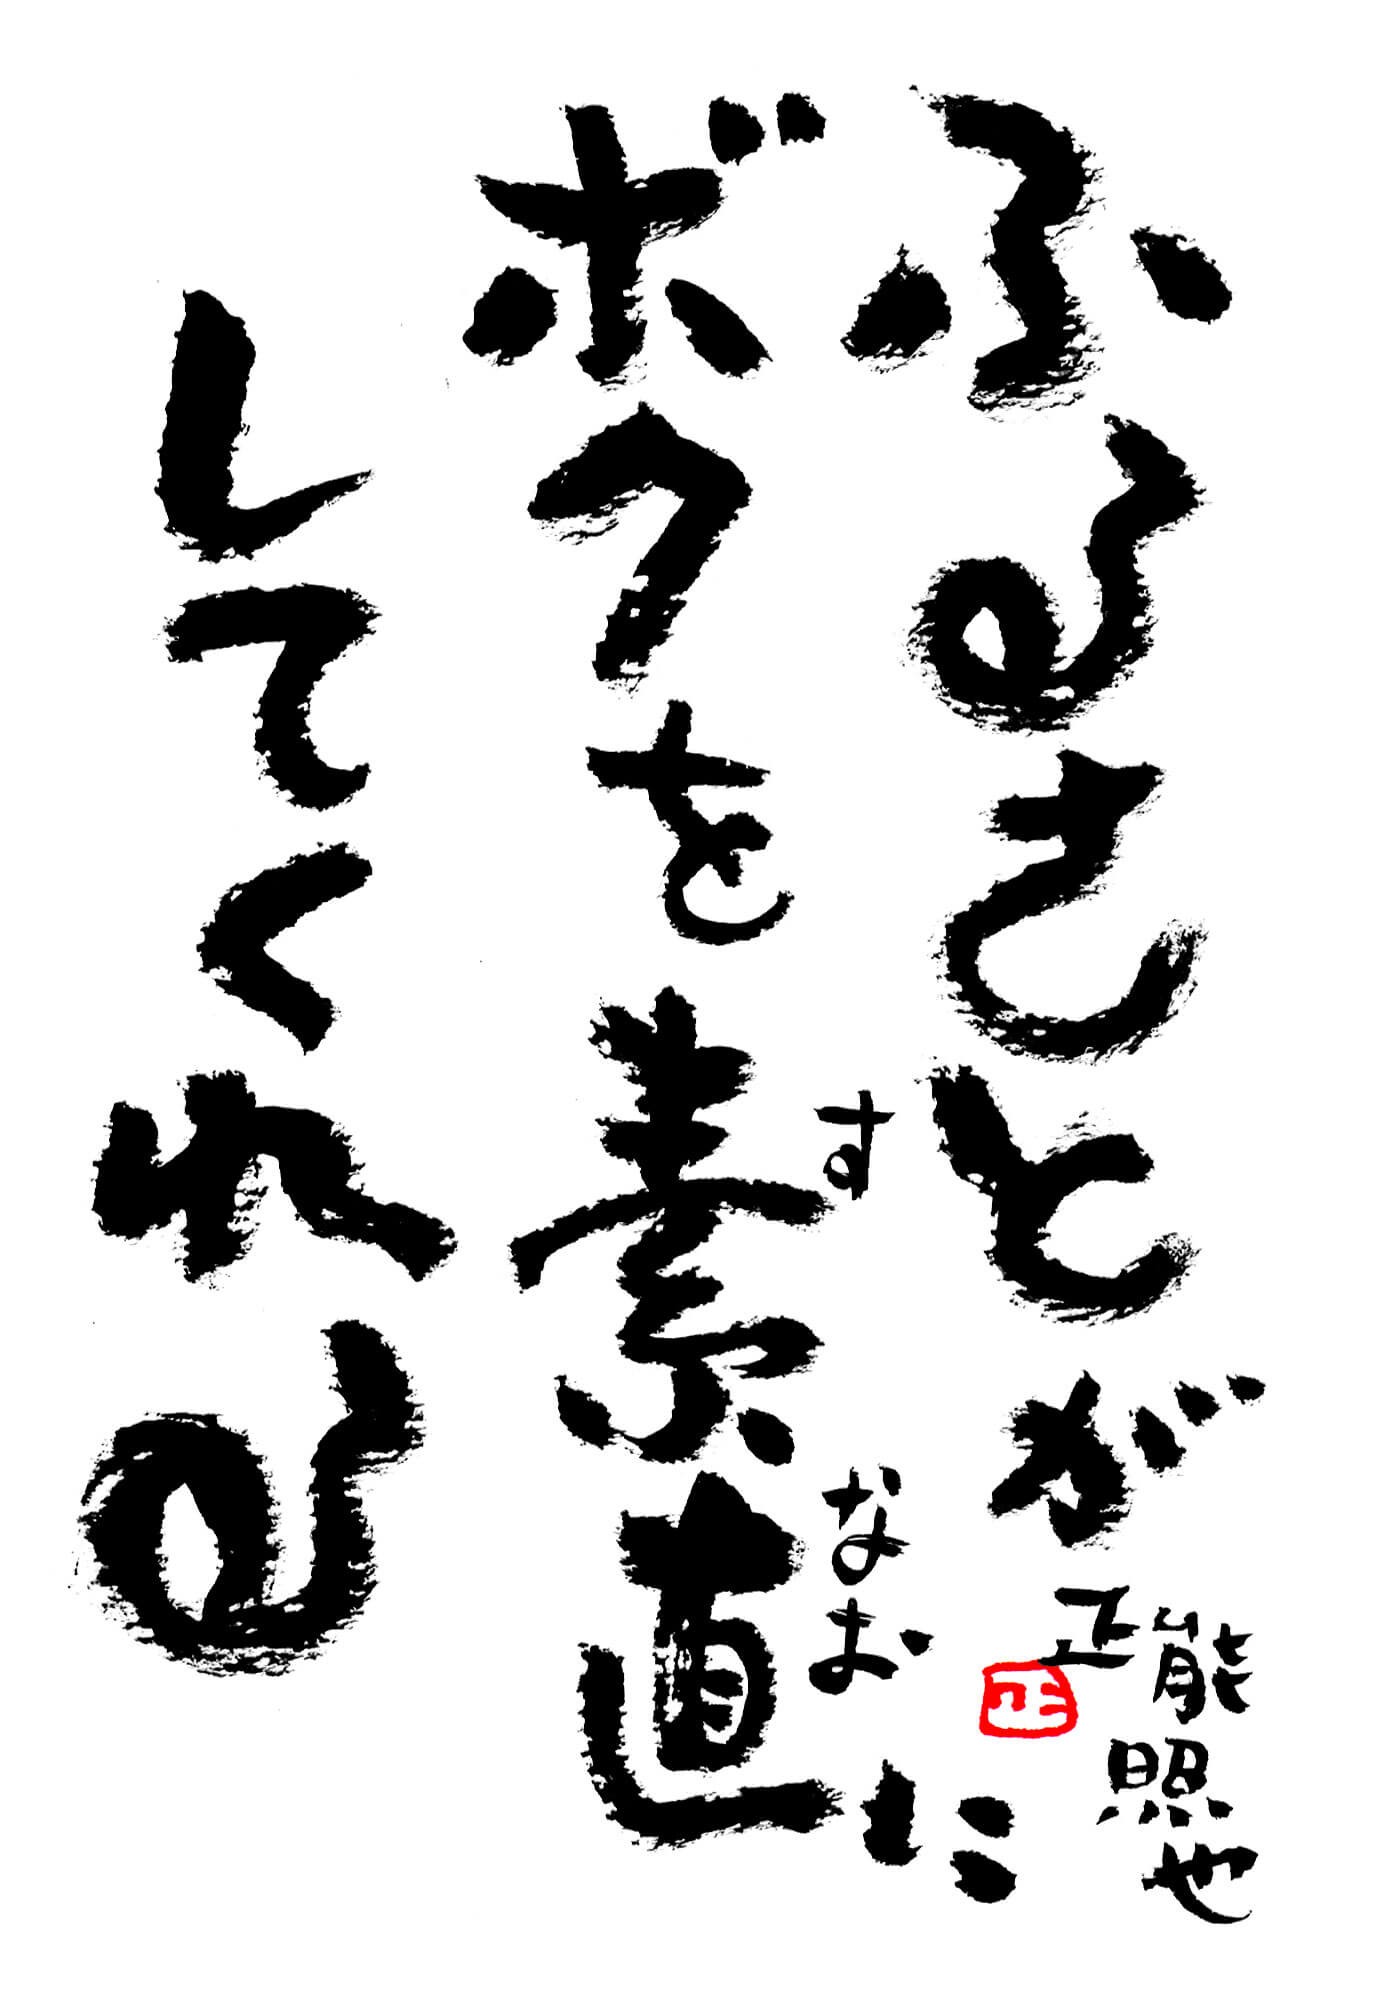 ふるさとが
ボクを素直に
すなお
してくれる
能照也
正